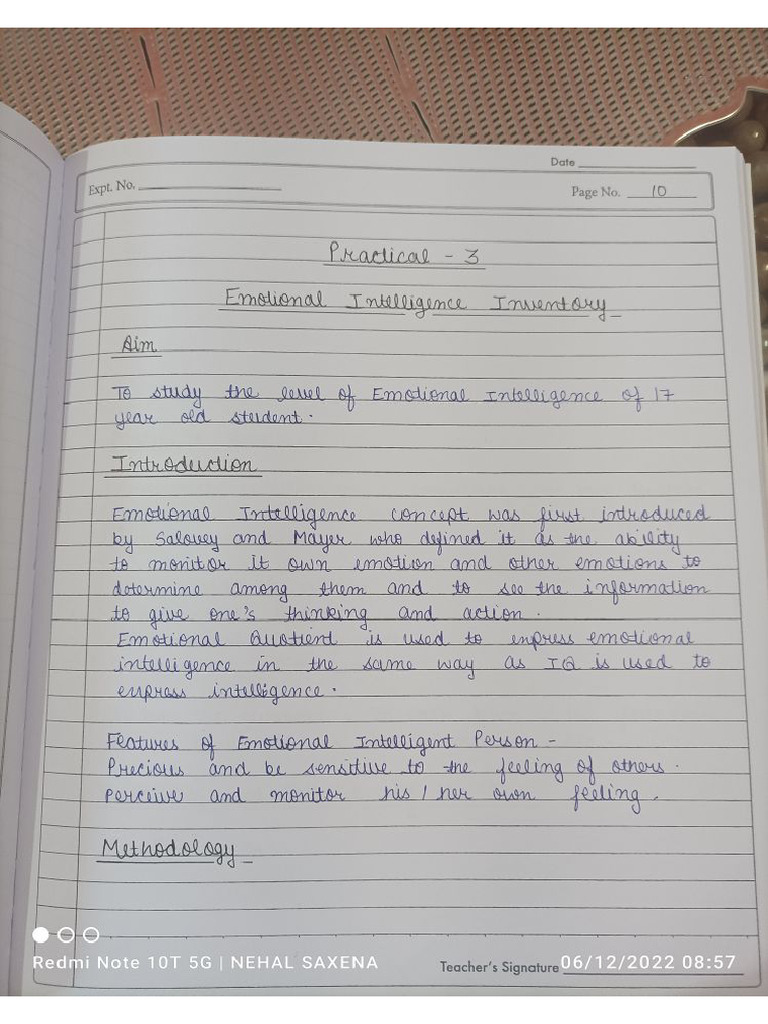 Date
Expt. No.
Page No. 10
Practical - 3
Emotional Intelligence Inventory
Aim
To study the level of Emotional Intelligence of 17
year old student.
Introduction
Emotional Intelligence concept was first introduced
by Salovey and Mayer who defined it as the ability
to monitor it own emotion and other emotions to
determine among them and to see the information
to give one's thinking and action.
Emotional Quotient is used to express emotional
intelligence in the same way as IQ is used to
express intelligence.
Features of Emotional Intelligent Person -
Precious and be sensitive to the feeling of others.
Perceive and monitor his / her own feeling.
Methodology
Redmi Note 10T 5G | NEHAL SAXENA
Teacher's Signature
06/12/2022 08:57